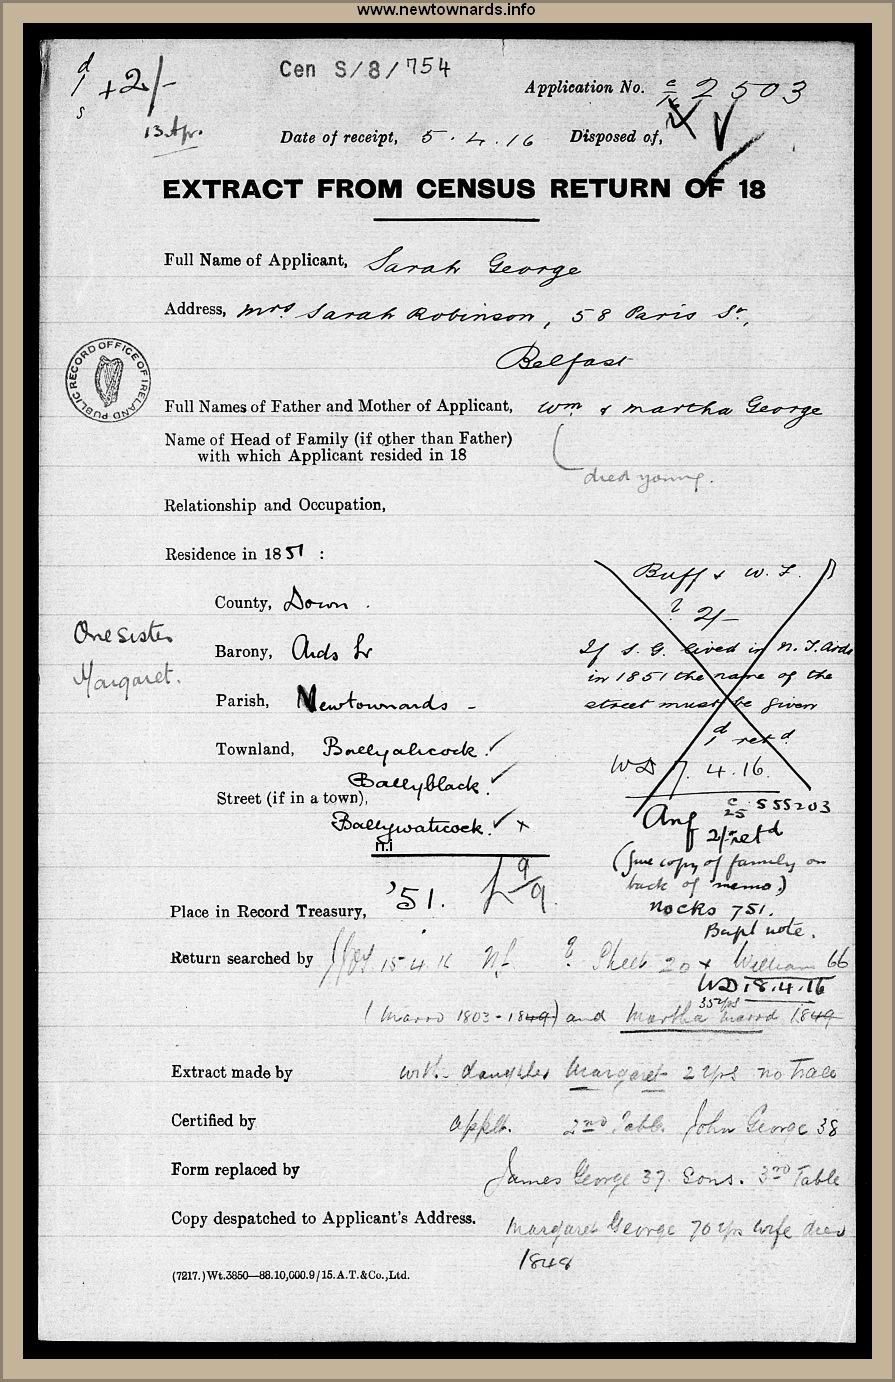 www.newtownards.info
d
1
s
+2/-
13 Apr.
Cen S/8/754
Application No. c/16 2503
Date of receipt, 5.4.16 Disposed of,
EXTRACT FROM CENSUS RETURN OF 18
Full Name of Applicant, Sarah George
Address, Mrs Sarah Robinson, 58 Paris St,
Belfast
PUBLIC RECORD OFFICE OF IRELAND
Full Names of Father and Mother of Applicant, Wm & Martha George
Name of Head of Family (if other than Father)
with which Applicant resided in 18
died young.
Relationship and Occupation,
Residence in 1851 :
Buff & W.F.
County, Down.
? 2/-
One sister
Margaret.
Barony, Ards Lr
If S. G. lived in N.T.Ards
in 1851 the name of the
street must be given
Parish, Newtownards -
1d retd.
Townland, Ballyalicock.
WD 7.4.16.
Ballyblack.
Street (if in a town),
Ballywaticock. x
c/25 555203
Anf
2/- retd
(Give copy of family on
back of memo.)
Nocks 751.
Bapl note.
Place in Record Treasury, '51. £9/9
Return searched by 15.4.16 Nf ? Sheet 20 x William 66
WD 18.4.16
35yrs
(Marrd 1803-1849) and Martha marrd 1849
Extract made by with daughter Margaret 2 yrs no trace
Certified by applt. 2nd Table John George 38
Form replaced by James George 37 Sons. 3rd Table
Copy despatched to Applicant's Address. Margaret George 70 yrs wife died
1848
(7217.)Wt.3850—88.10,000.9/15.A.T.&Co.,Ltd.